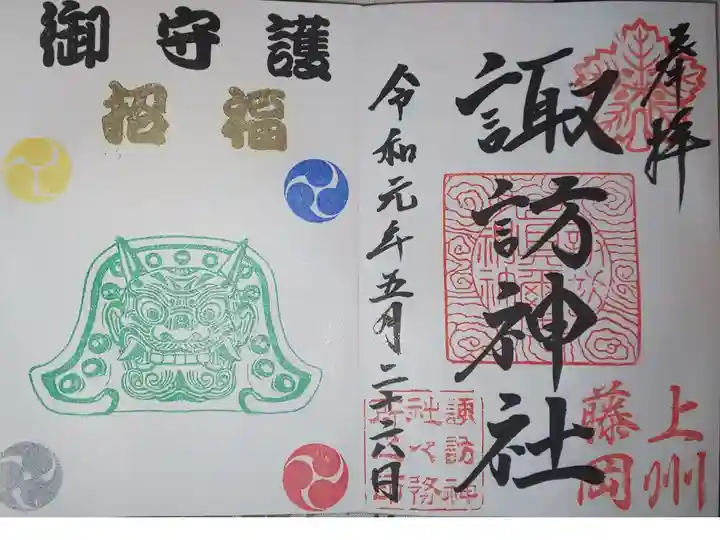 奉拝
諏訪神社
上州
藤岡
令和元年五月二十六日
諏訪神
社
務
御守護
招福